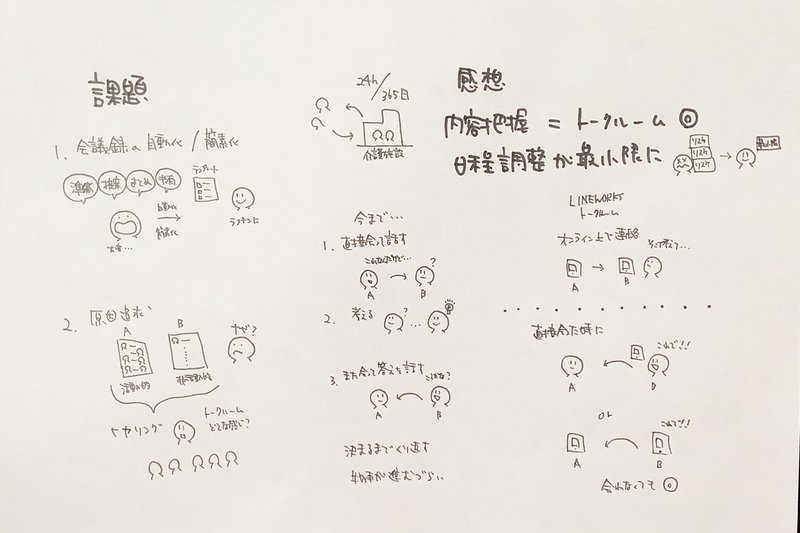 課題
1. 会議録の自動化 / 簡素化
準備
検索
まとめ
共有
自動化
簡素化
テンプレート
大変…
ラクチンに
2. 原因追求
A
B
なぜ?
活動的
非活動的
ヒヤリング
トークルーム
どんな感じ?
24h/365日
介護施設
今まで…
1. 直接会って話す
こんなんだけど…
?
A
B
2. 考える
?
…
3. また会って答えを話す
こうかな?
A
B
決まるまでくり返す
物事が進みづらい
感想
内容把握 = トークルーム ◎
日程調整が最小限に
リスケ
リスケ
リスケ
LINEWORKS
トークルーム
オンライン上で連絡
そこで考えて…
A
B
直接会った時に
これで!!
A
B
or
これで!!
A
B
会れなくても ◎